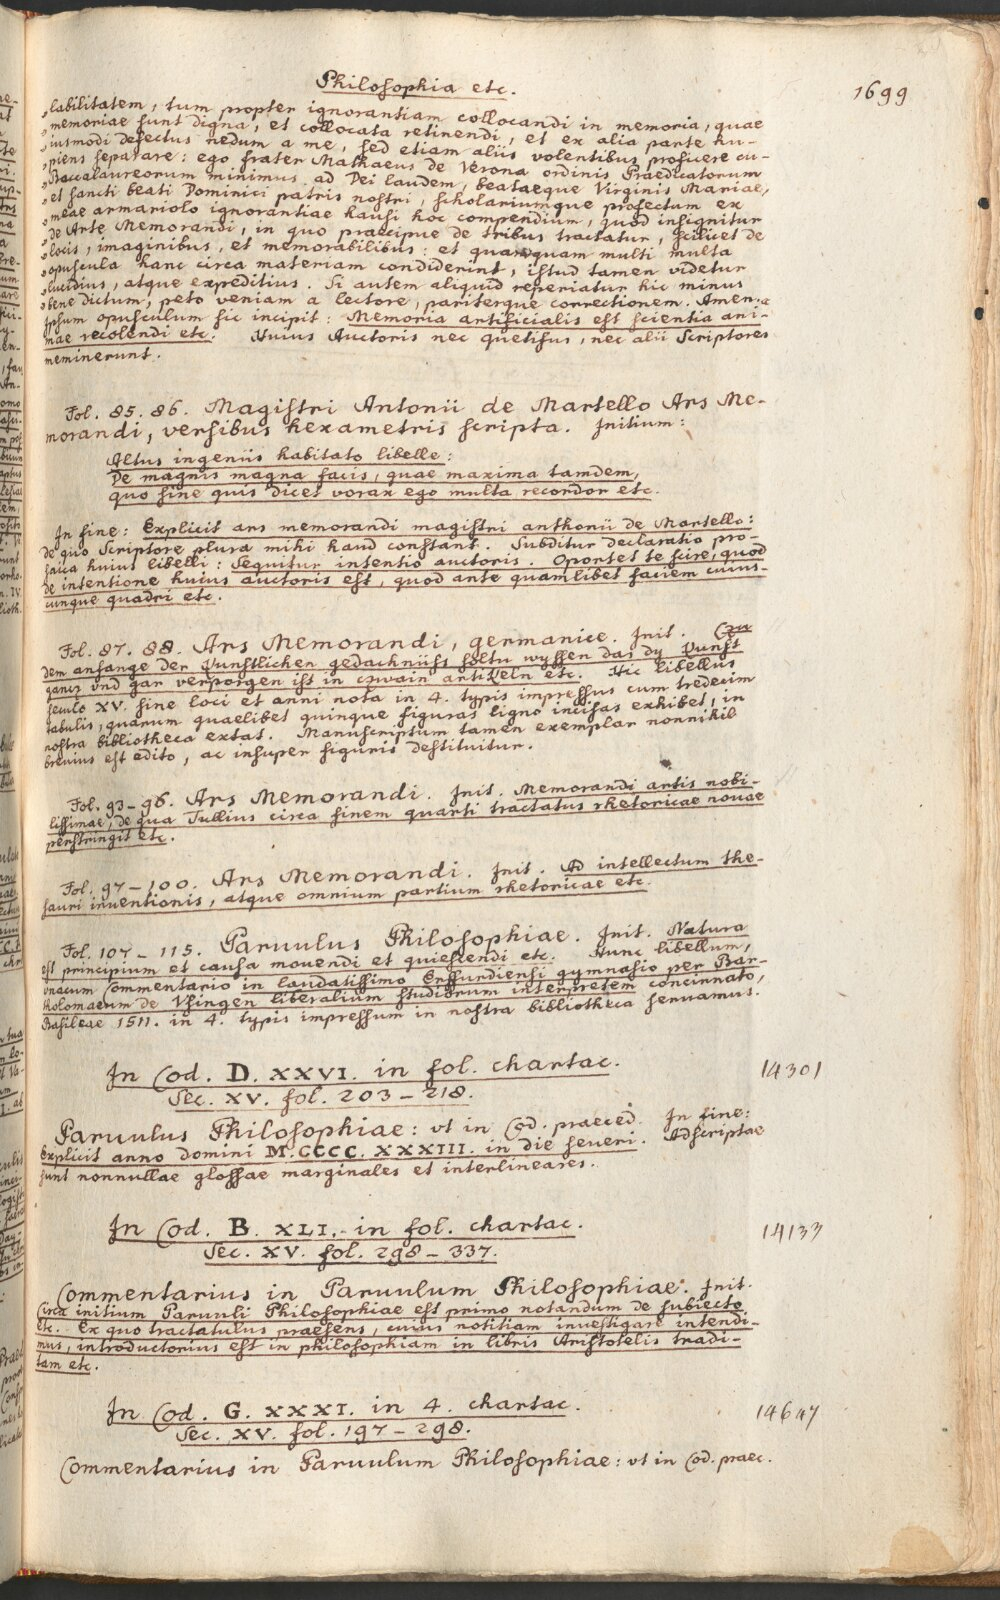 Philosophia etc.
1699
„labilitatem, tum propter ignorantiam collocandi in memoria, quae
„memoriae sunt digna, et collocata retinendi, et ex alia parte hu-
„iusmodi defectus nedum a me, sed etiam aliis volentibus proficere cu-
„piens separare: ego frater Mathaeus de Verona ordinis Praedicatorum
„Baccalaureorum minimus ad Dei laudem, beataeque Virginis Mariae,
„et sancti beati Dominici patris nostri, scholariumque profectum ex
„meae armariolo ignorantiae hausi hoc compendium, quod insignitur
„de Arte Memorandi, in quo praecipue de tribus tractatur, scilicet de
„locis, imaginibus, et memorabilibus: et quamquam multi multa
„opuscula hanc circa materiam condiderint, istud tamen videtur
„lucidius, atque expeditius. Si autem aliquid reperiatur hic minus
„bene dictum, peto veniam a lectore, pariterque correctionem. Amen.„
Ipsum opusculum sic incipit: Memoria artificialis est scientia ani-
mae recolendi etc. Huius Auctoris nec Quetifus, nec alii Scriptores
meminerunt.
Fol. 85. 86. Magistri Antonii de Martello Ars Me-
morandi, versibus hexametris scripta. Initium:
Altus ingeniis habitato libelle:
De magnis magna facis, quae maxima tamdem,
quo sine quis dicet vorax ego multa recordor etc.
In fine: Explicit ars memorandi magistri anthonii de Martello:
de quo Scriptore plura mihi haud constant. Subditur declaratio pro-
saica huius libelli: Sequitur intentio auctoris. Oportet te scire, quod
de intentione huius auctoris est, quod ante quamlibet faciem cuius-
cunque quadri etc.
Fol. 87. 88. Ars Memorandi, germanice. Init. Czu
dem anfange der Kunstlichen gedachnüss soltu wyssen das dy Kunst
gancz vnd gar verporgen ist in czwain artikeln etc. Hic libellus
seculo XV. sine loci et anni nota in 4. typis impressus cum tredecim
tabulis, quarum quaelibet quinque figuras ligno incisas exhibet, in
nostra bibliotheca extat. Manuscriptum tamen exemplar nonnihil
brevius est edito, ac insuper figuris destituitur.
Fol. 93-96. Ars Memorandi. Init. Memorandi artis nobi-
lissimae, de qua Tullius circa finem quarti tractatus rhetoricae novae
perstringit etc.
Fol. 97-100. Ars Memorandi. Init. Ad intellectum the-
sauri inventionis, atque omnium partium rhetoricae etc.
Fol. 107-115. Paruulus Philosophiae. Init. Natura
est principium et causa mouendi et quiescendi etc. Hunc libellum,
vnacum Commentario in laudatissimo Erffurdiensi gymnasio per Bar-
tholomaeum de Vsingen liberalium studiorum interpretem concinnato,
Basileae 1511. in 4. typis impressum in nostra bibliotheca seruamus.
In Cod. D. XXVI. in fol. chartac.
14301
Sec. XV. fol. 203-218.
Paruulus Philosophiae: vt in Cod. praeced. In fine:
Explicit anno domini M.CCCC.XXXIII. in die seueri. Adscriptae
sunt nonnullae glossae marginales et interlineares.
In Cod. B. XLI. in fol. chartac.
14133
Sec. XV. fol. 298-337.
Commentarius in Paruulum Philosophiae. Init.
Circa initium Paruuli Philosophiae est primo notandum de subiecto
etc. Ex quo tractatulus praesens, cuius notitiam inuestigare intendi-
mus, introductorius est in philosophiam in libris Aristotelis tradi-
tam etc.
In Cod. G. XXXI. in 4. chartac.
14647
Sec. XV. fol. 197-298.
Commentarius in Paruulum Philosophiae: vt in Cod. praec.